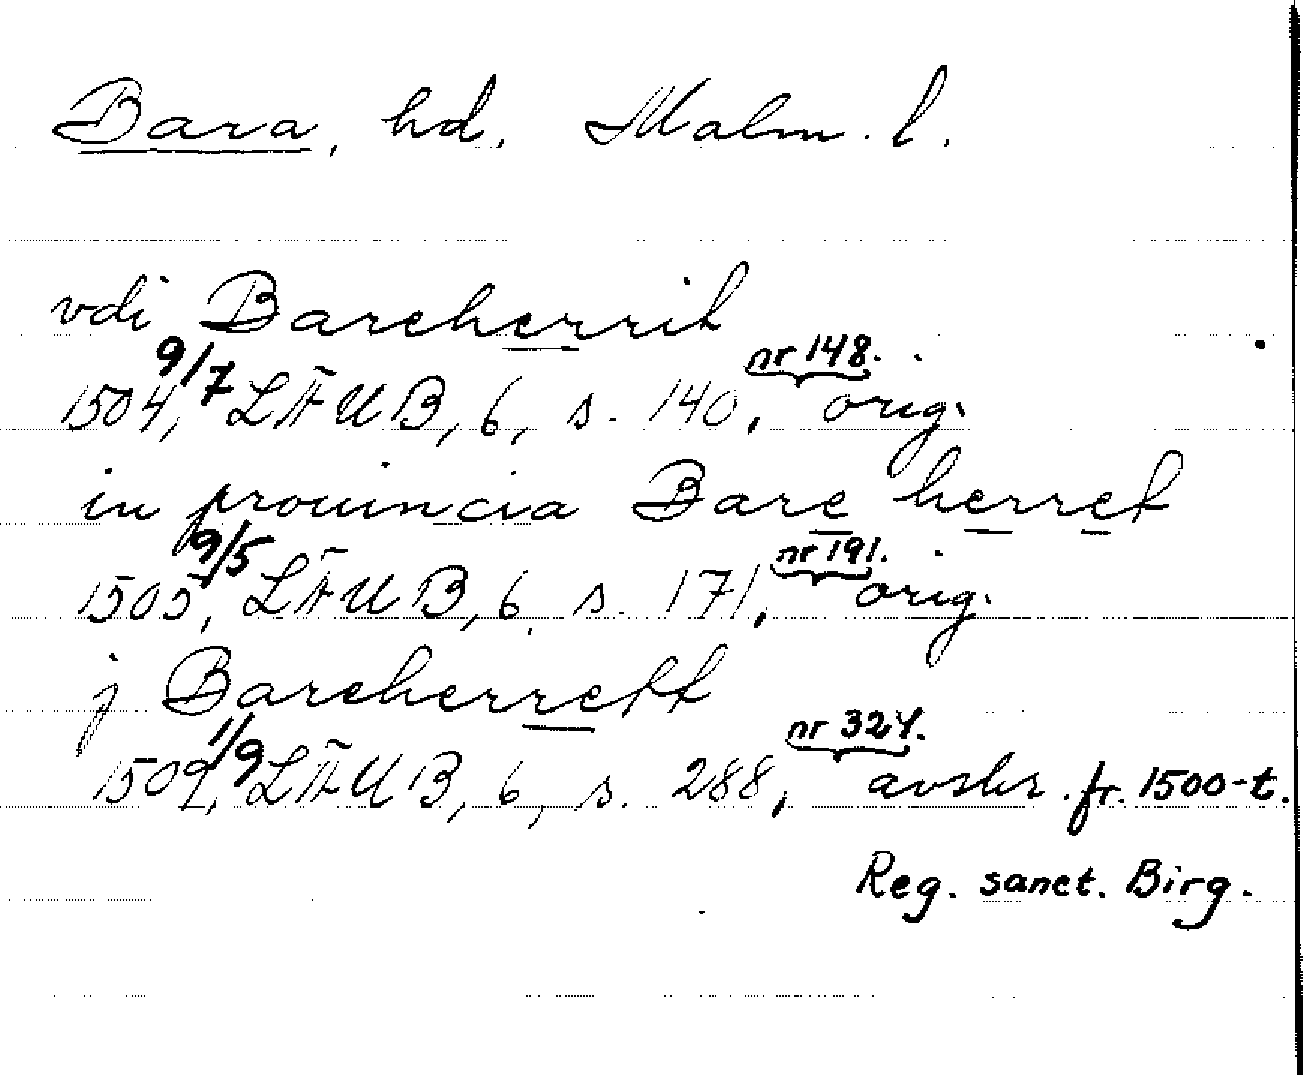 Bara, hd. Malm. l.
vdi Bareherrit
1504, 9/7 LÄUB, 6, s. 140, nr 148. orig.
in prouincia Bare herret
1505, 9/5 LÄUB, 6, s. 171, nr 191. orig.
j Bareherrett
1509, 1/9 LÄUB, 6, s. 288, nr 324. avskr. fr. 1500-t.
Reg. sanct. Birg.